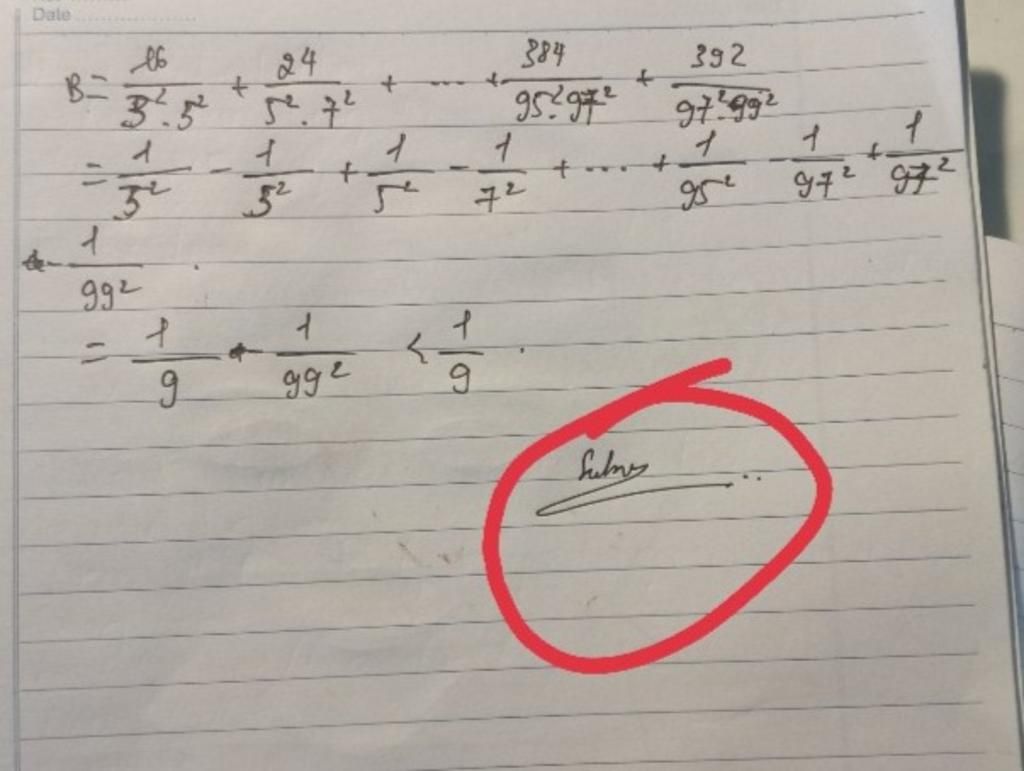 Date
B = 16/3².5² + 24/5².7² + ... + 384/95².97² + 392/97².99²
= 1/3² - 1/5² + 1/5² - 1/7² + ... + 1/95² - 1/97² + 1/97²
- 1/99² .
= 1/9 - 1/99² < 1/9 .